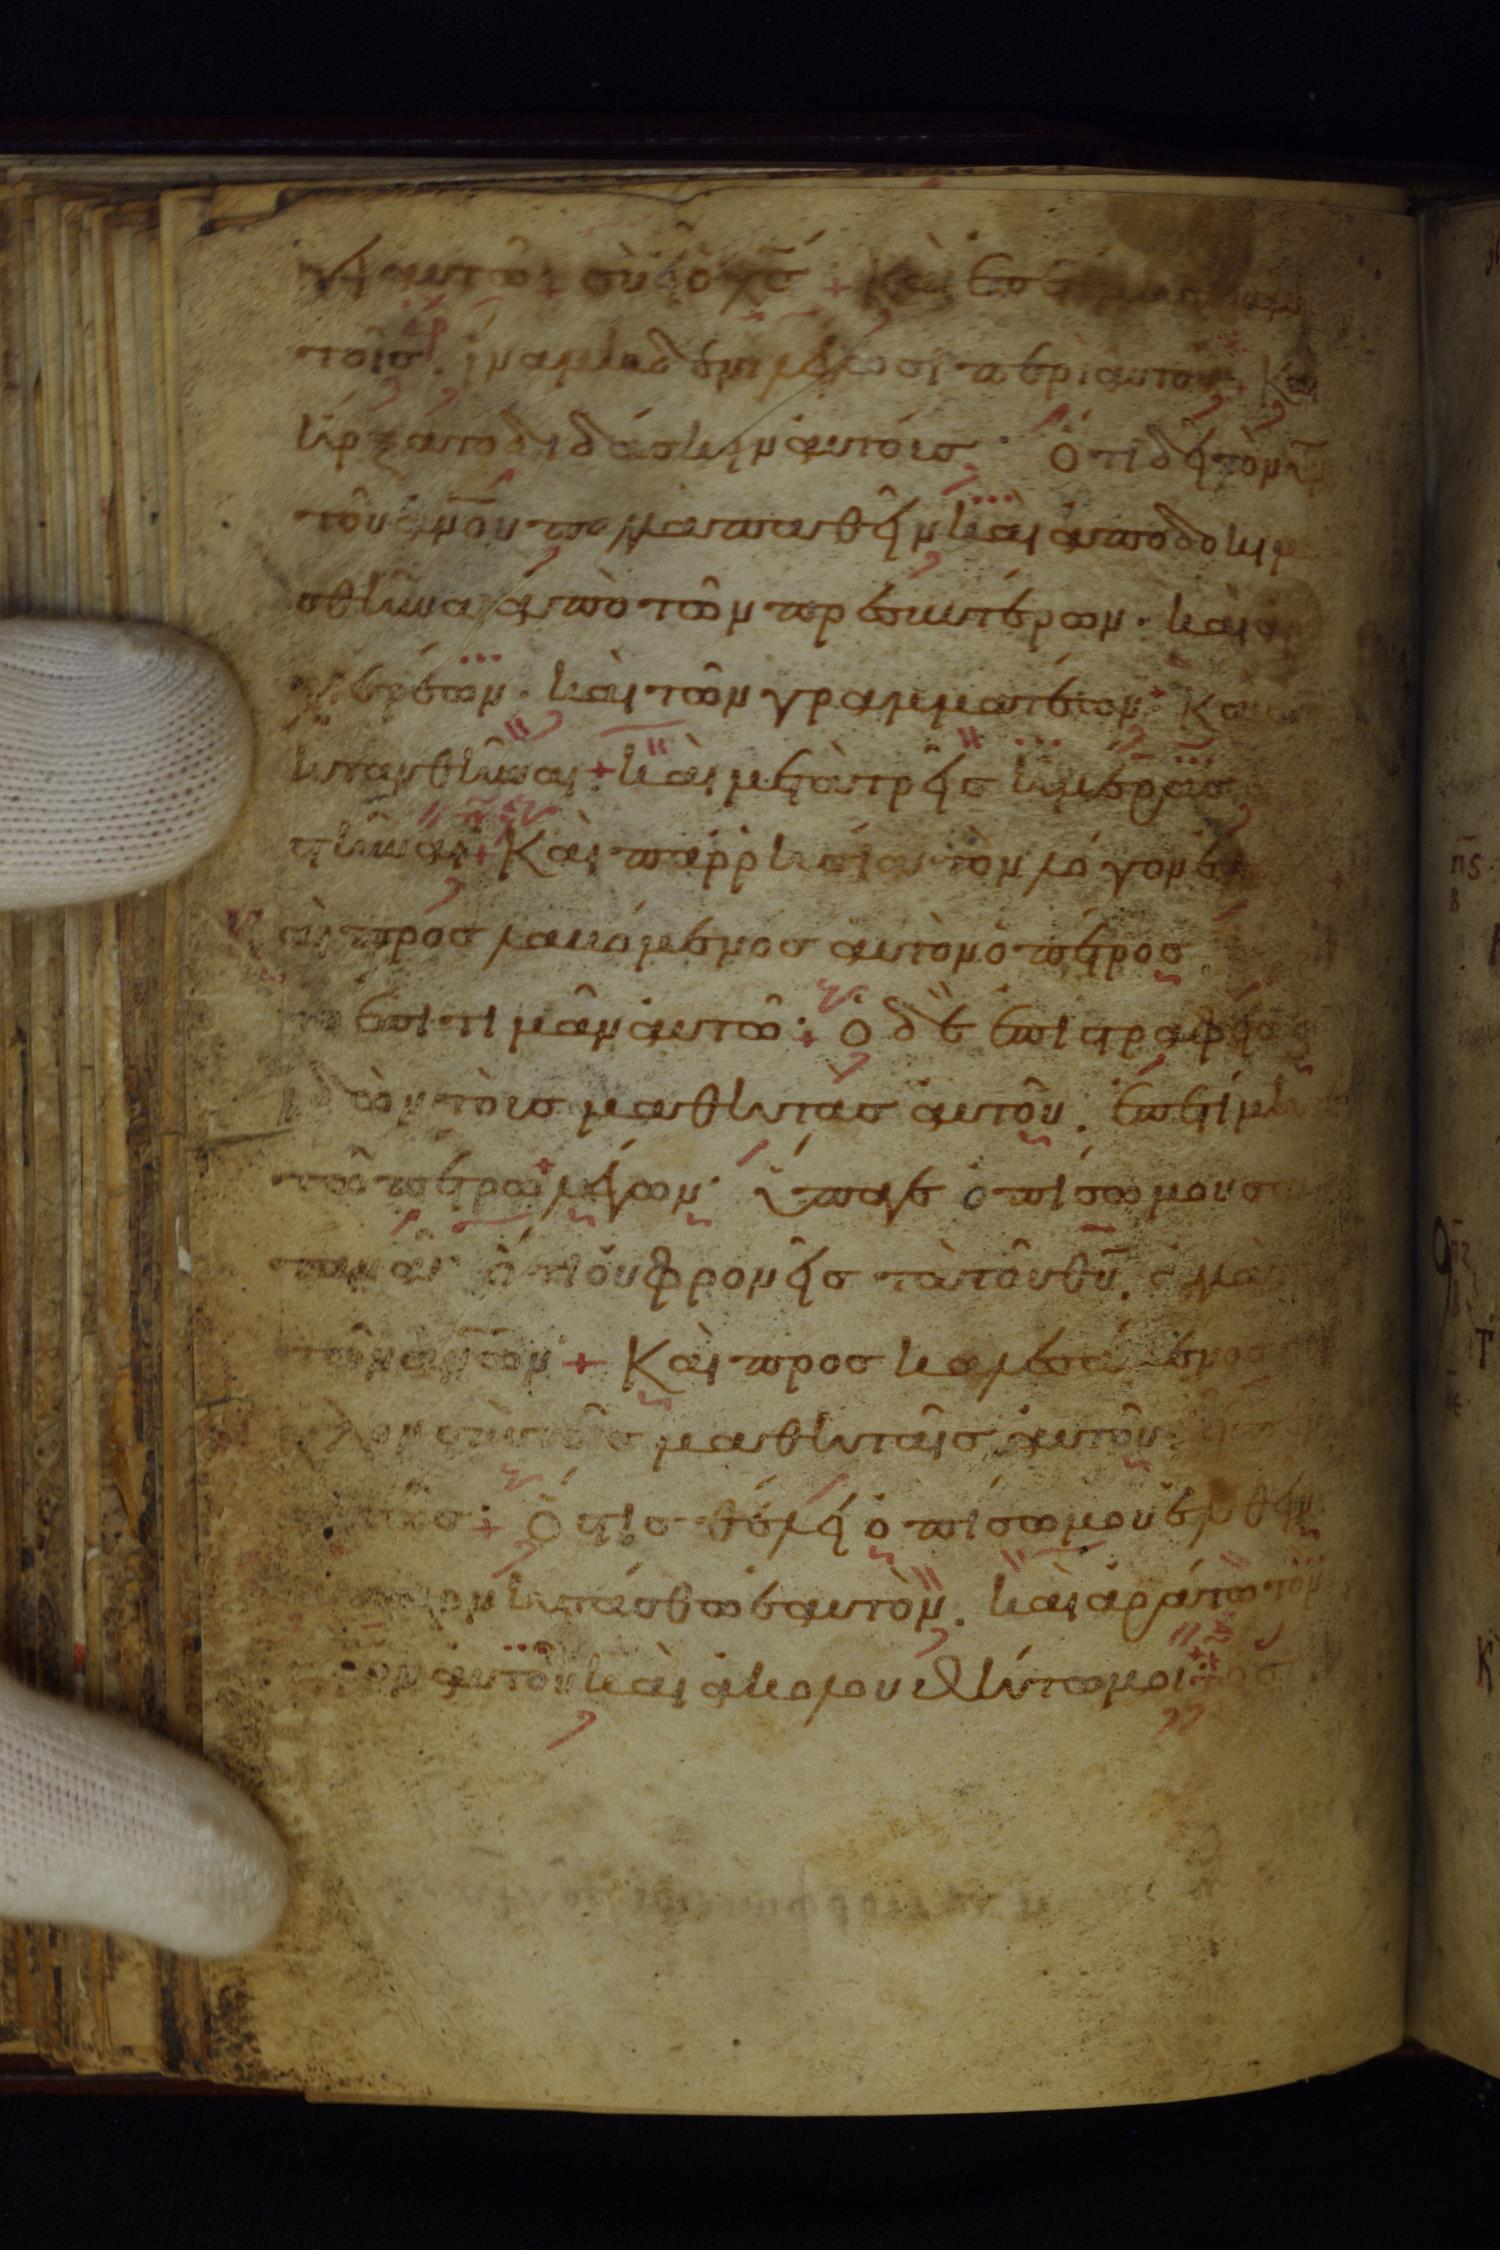 γει αυτῶ + σὺ εἶ ὁ χς + Καὶ
τοῖς. ἵνα μηδενὶ λέγωσι περὶ αυτοῦ + Και
ἤρξατο διδάσκειν αυτοῖς · Ὅτι δεῖ τὸν υν
τοῦ ανου πολλὰ παθεῖν καὶ αποδοκιμα
σθῆναι απὸ τῶν πρεσβυτέρων · καὶ αρ
χιερέων · καὶ τῶν γραμματέων + Καὶ απο
κτανθῆναι + καὶ μετὰ τρεῖς ἡμέρας
στῆναι + Καὶ παρρησία τὸν λόγον ε
Καὶ προσλαβόμενος αυτὸν ὁ πέτρος
επιτιμᾶν αυτῶ + Ὁ δὲ επιστραφεὶς
ἰδὼν τοὺς μαθητὰς αυτοῦ. επετίμη
τῶ πέτρω λέγων · ὕπαγε οπίσω μου σα
τανᾶ · ὅτι ου φρονεῖς τὰ τοῦ θυ. αλλὰ
τῶν ανων + Καὶ προσκαλεσάμενος
ὄχλον σὺν τοῖς μαθηταῖς αυτοῦ
+ Ὅστις θέλει οπίσω μου ελθεῖν
απαρνησάσθω εαυτὸν. καὶ αράτω τὸν
αυτοῦ καὶ ακολουθήτω μοι + ὃς